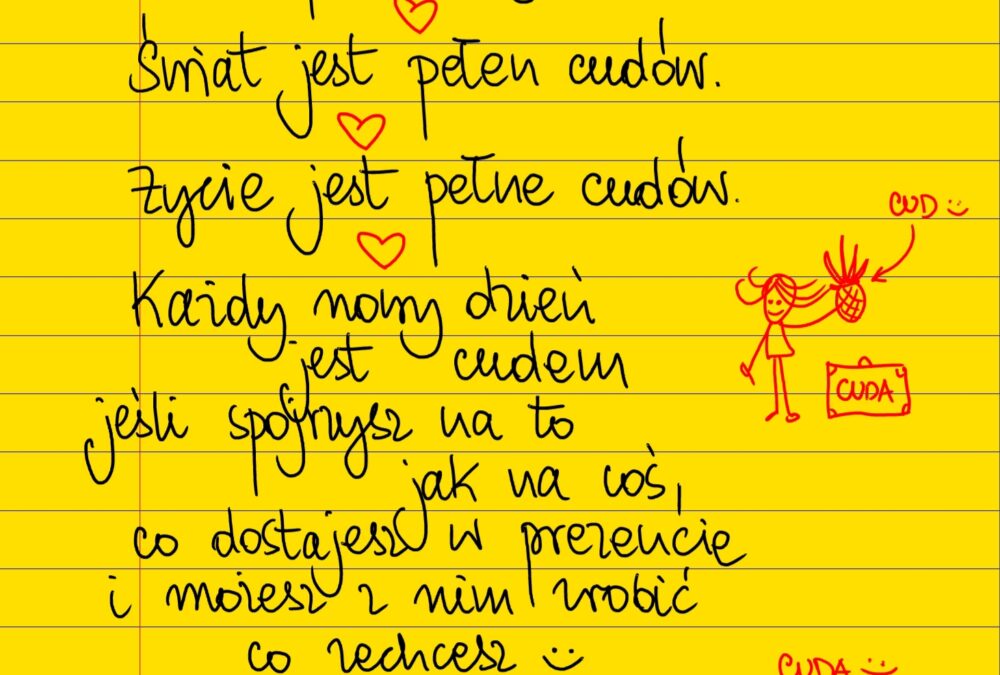 Świat jest pełen cudów.
Życie jest pełne cudów.
CUD :)
Każdy nowy dzień
jest cudem
CUDA
jeśli spojrzysz na to
jak na coś,
co dostajesz w prezencie
i możesz z nim zrobić
co zechcesz :)
CUDA :)